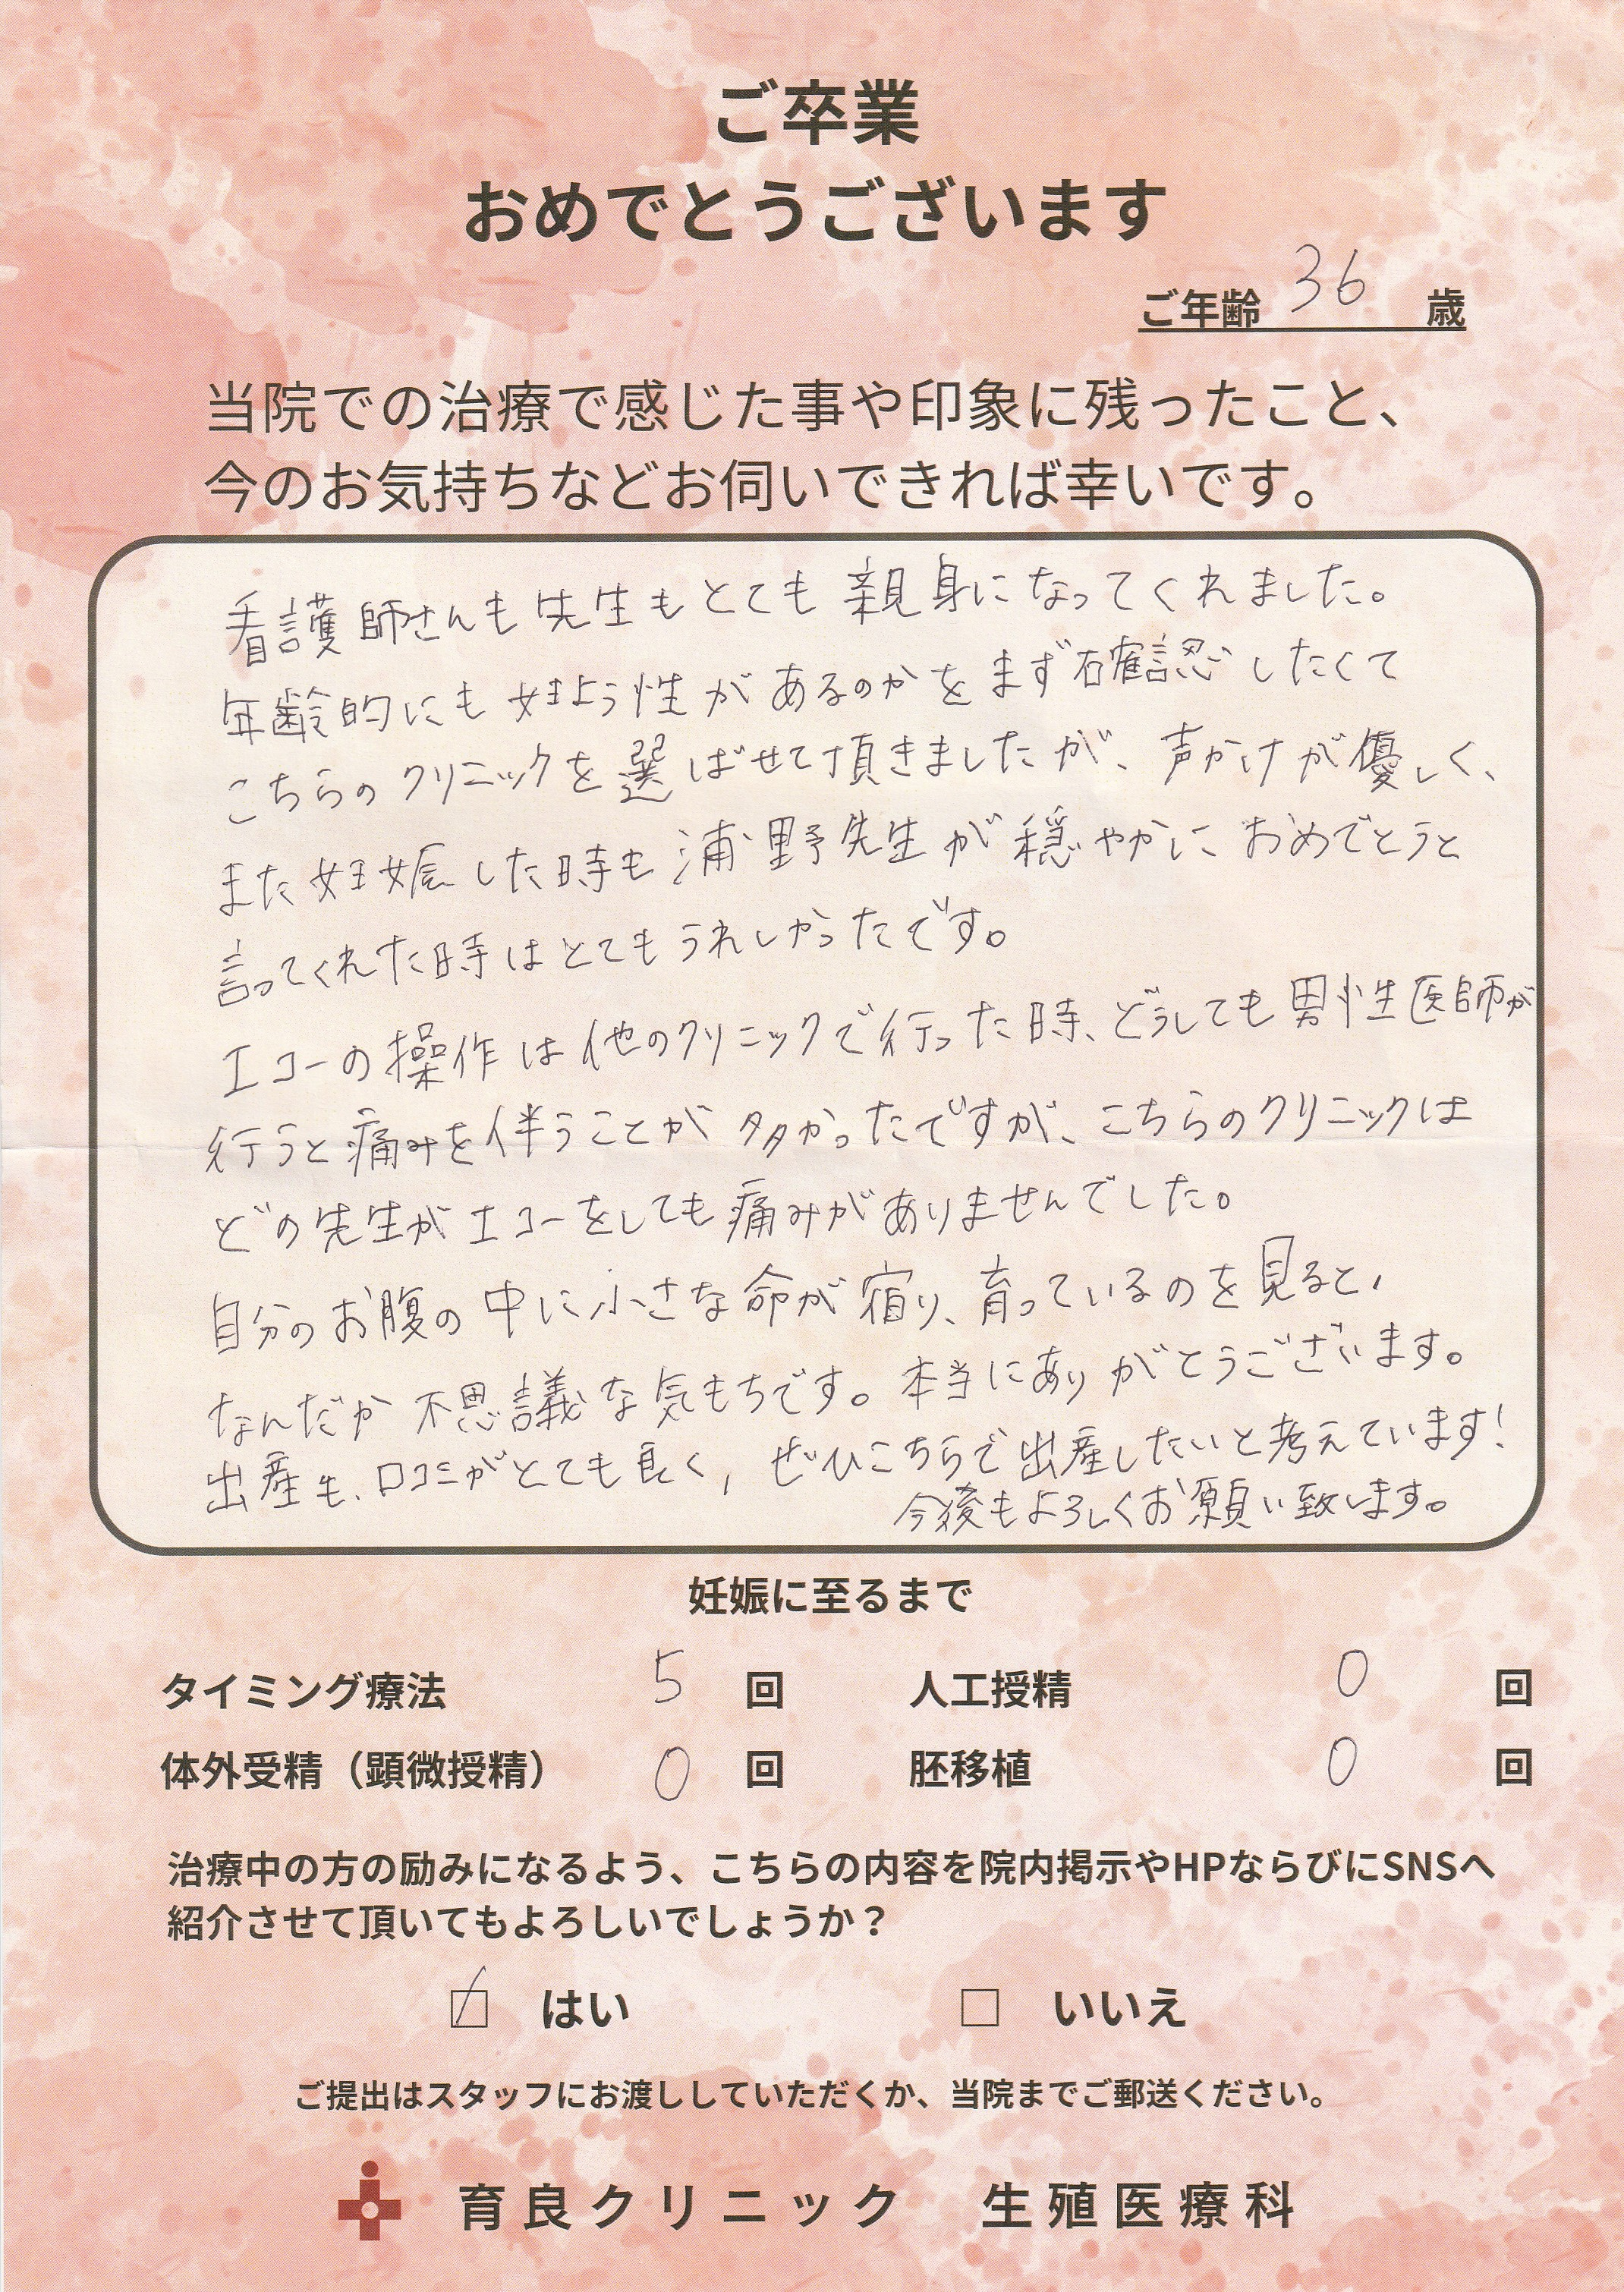 ご卒業
おめでとうございます
ご年齢 36 歳
当院での治療で感じた事や印象に残ったこと、
今のお気持ちなどお伺いできれば幸いです。
看護師さんも先生もとても親身になってくれました。
年齢的にも妊よう性があるのかをまず確認したくて
こちらのクリニックを選ばせて頂きましたが、声かけが優しく、
また妊娠した時も浦野先生が穏やかにおめでとうと
言ってくれた時はとてもうれしかったです。
エコーの操作は他のクリニックで行った時、どうしても男性医師が
行うと痛みを伴うことが多かったですが、こちらのクリニックは
どの先生がエコーをしても痛みがありませんでした。
自分のお腹の中に小さな命が宿り、育っているのを見ると、
なんだか不思議な気もちです。本当にありがとうございます。
出産も、口コミがとても良く、ぜひこちらで出産したいと考えています!
今後もよろしくお願い致します。
妊娠に至るまで
タイミング療法 5 回 人工授精 0 回
体外受精（顕微授精） 0 回 胚移植 0 回
治療中の方の励みになるよう、こちらの内容を院内掲示やHPならびにSNSへ
紹介させて頂いてもよろしいでしょうか？
☑ はい □ いいえ
ご提出はスタッフにお渡ししていただくか、当院までご郵送ください。
育良クリニック 生殖医療科